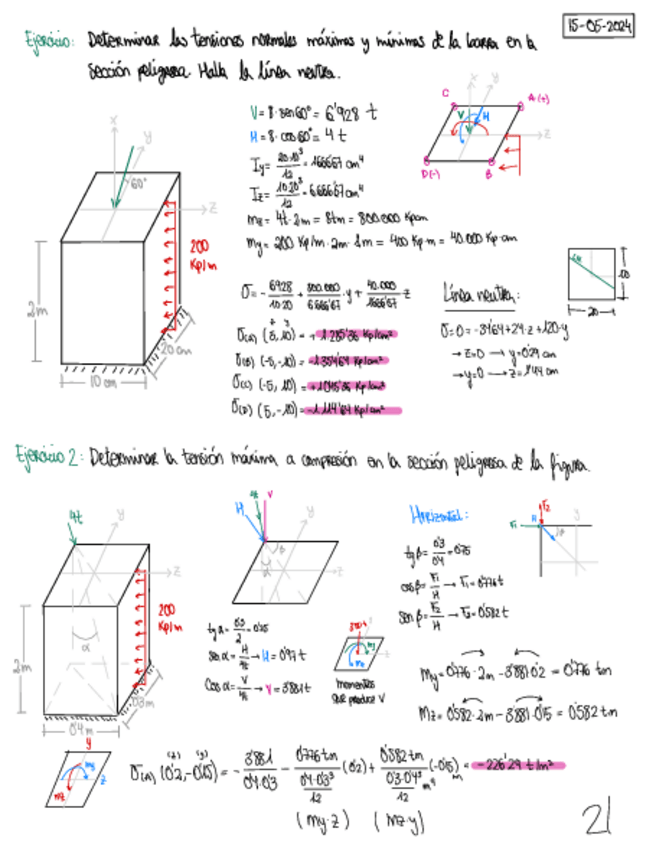 15-05-2024
Ejercicio: Determinar las tensiones normales máximas y mínimas de la barra en la
sección peligrosa. Halla la línea neutra.
V = 8·sen60° = 6'928 t
H = 8·cos60° = 4 t
Iy = 20·10³/12 = 1666'67 cm⁴
Iz = 10·20³/12 = 6666'67 cm⁴
Mz = 4t·2m = 8tm = 800.000 Kpcm
My = 200 Kp/m·2m·1m = 400 Kp·m = 40.000 Kp·cm
x
y
60°
z
200
Kp/m
2m
20 cm
10 cm
C
x
y
A(+)
V
H
z
D(-)
B
σ = - 6928/10·20 + 800.000/6666'67 · y + 40.000/1666'67 z
σ(A) (5, 10) = + 1.285'36 Kp/cm²
σ(B) (-5, -10) = -1354'64 Kp/cm²
σ(C) (-5, 10) = +1045'36 Kp/cm²
σ(D) (5, -10) = -1.114'64 Kp/cm²
Línea neutra:
σ=0 = -34'64+24·z+120·y
→ z=0 → y=0'29 cm
→ y=0 → z=1'44 cm
10
20
Ejercicio 2: Determinar la tensión máxima a compresión en la sección peligrosa de la figura.
4t
y
z
200
Kp/m
α
2m
0'3m
0'4m
H
4t
V
y
z
β
α
Horizontal:
tgβ = 0'3/0'4 = 0'75
cosβ = F1/H → F1 = 0'776 t
senβ = F2/H → F2 = 0'582 t
F2
F1
H
β
senα = H/4t → H = 0'97 t
cosα = V/4t → V = 3'881 t
3'881t
My
Mz
momentos
que produce V
My = 0'776·2m - 3'881·0'2 = 0'776 tm
Mz = 0'582·2m - 3'881·0'15 = 0'582 tm
y
My
z
Mz
σ(A) (0'2, -0'15) = - 3'881/0'4·0'3 - 0'776 tm/(0'4·0'3³/12) (0'2) + 0'582 tm/(0'3·0'4³/12) m⁴ (-0'15) m = -226'29 t/m²
(z) (y)
(My·z) (Mz·y)
21